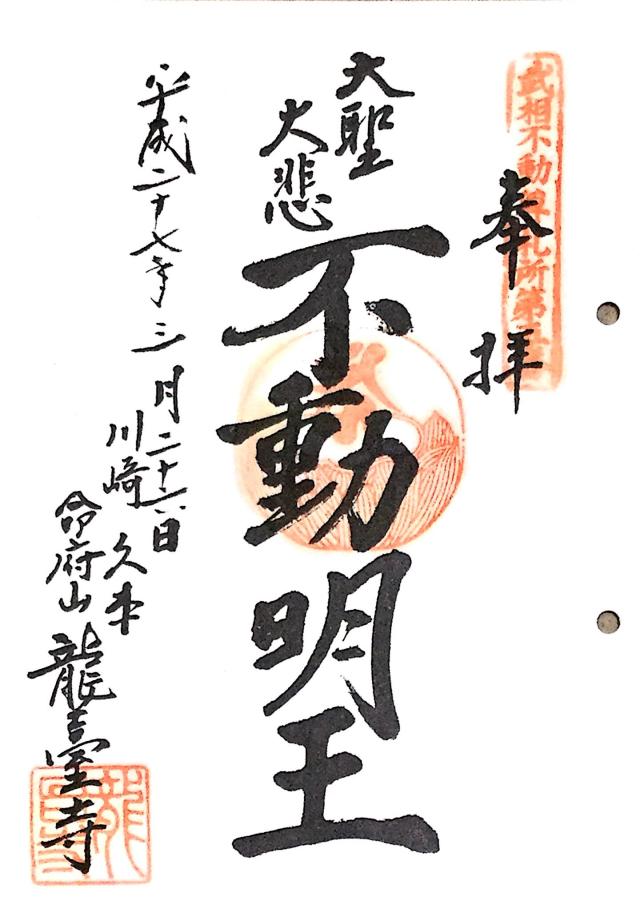 武相不動尊札所第
奉拝
大聖
大悲
不動明王
平成二十七年三月二十六日
川崎 久本
命府山 龍臺寺